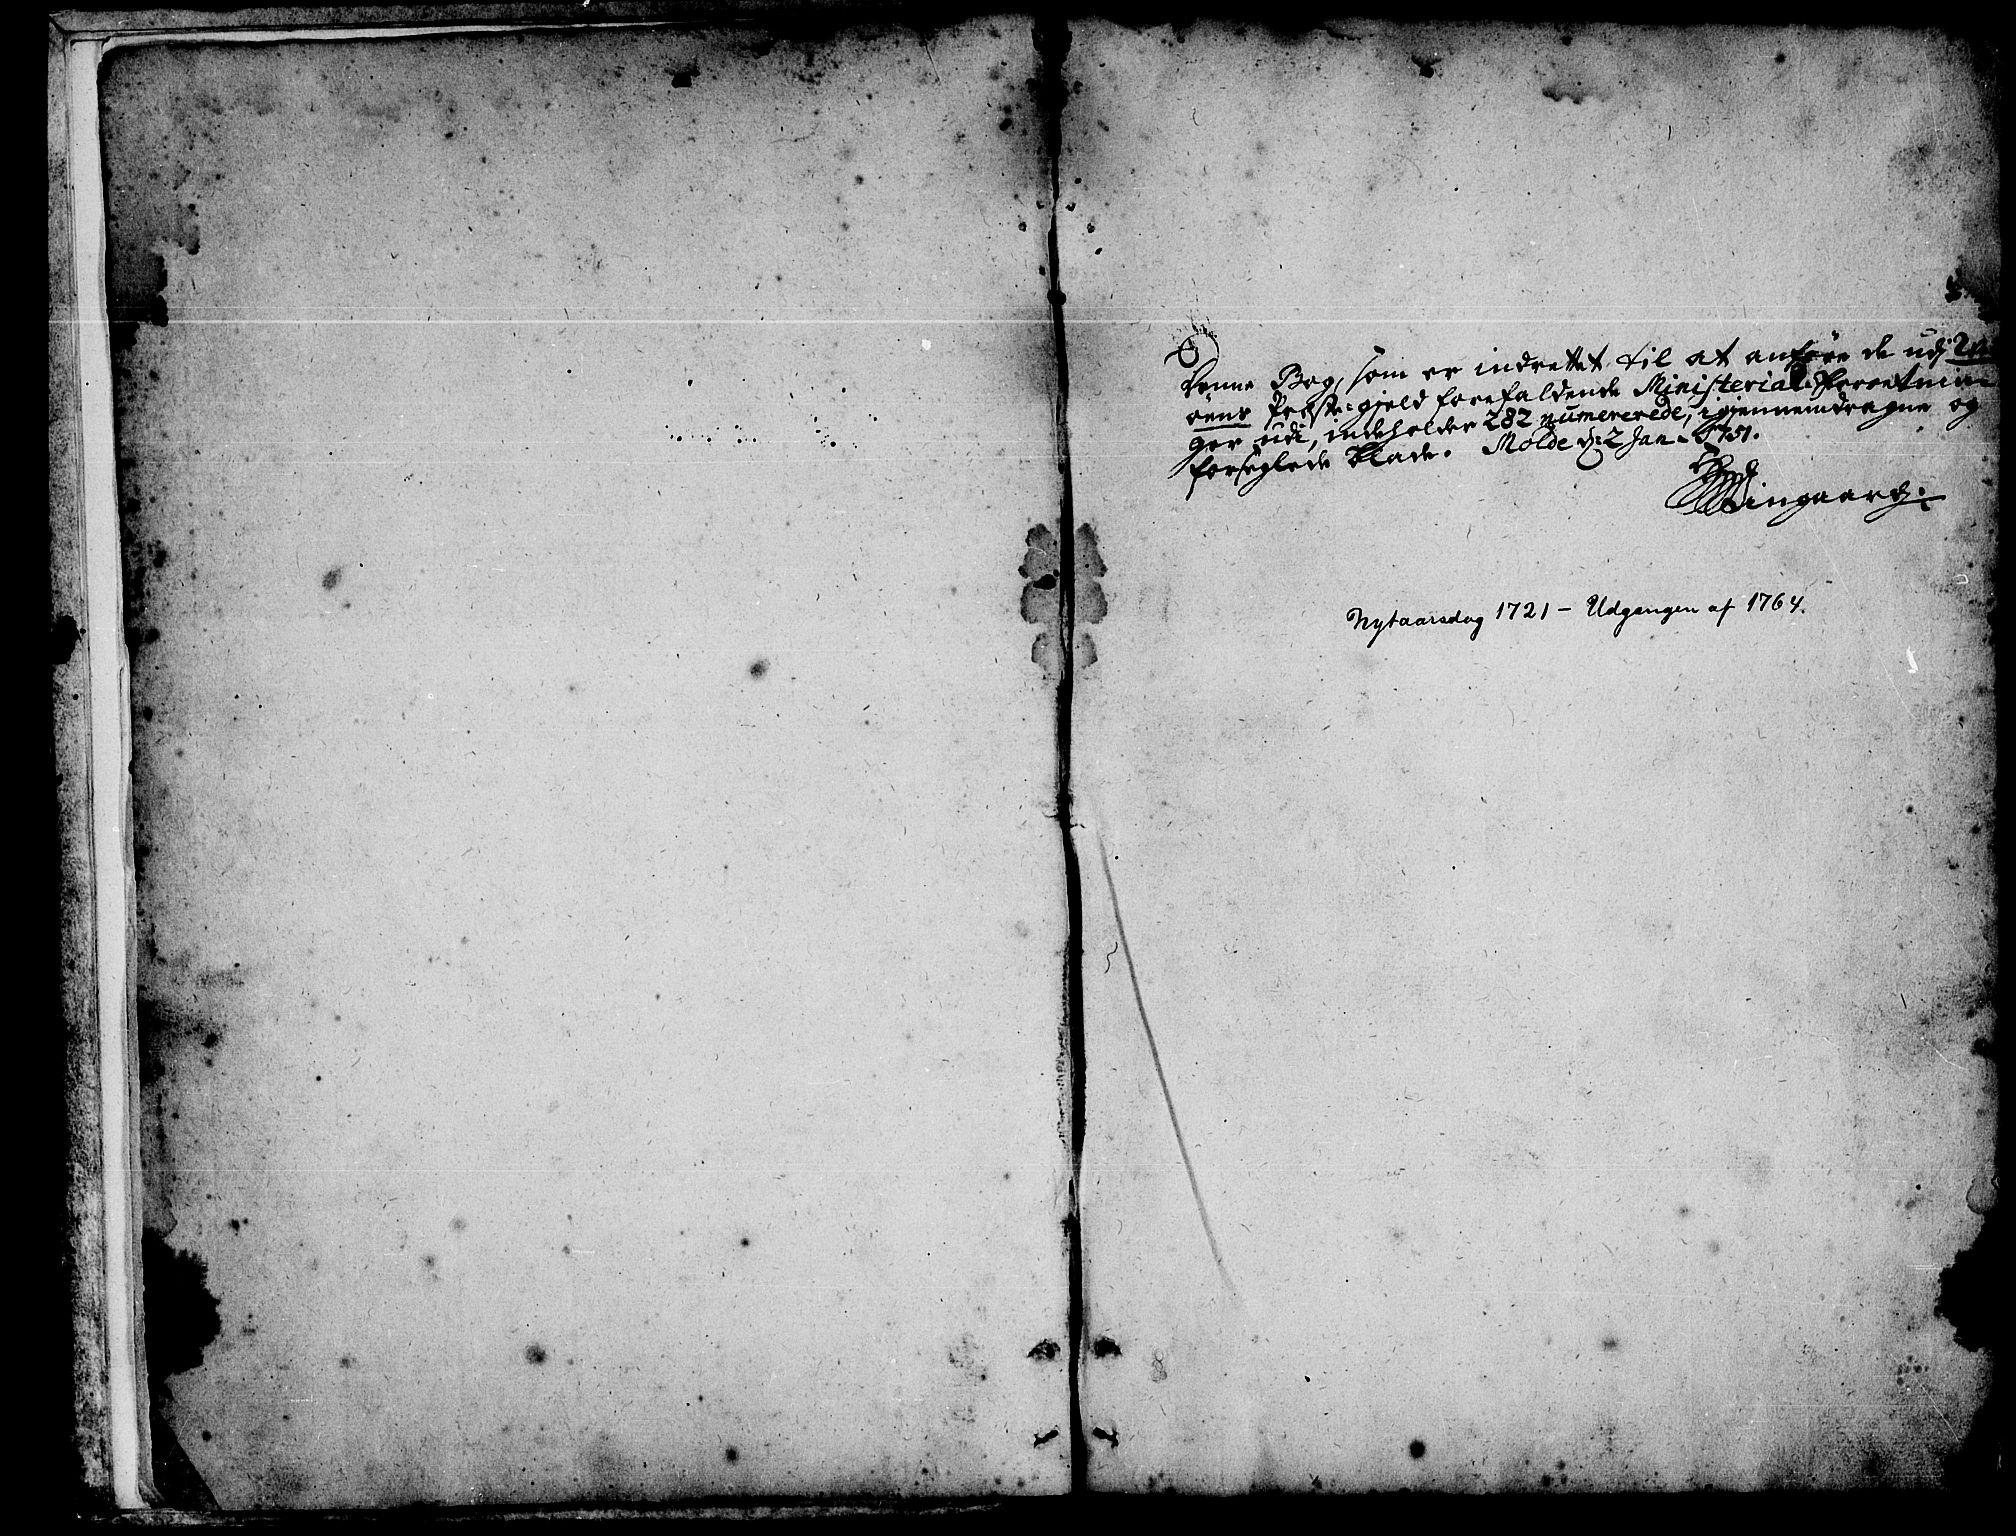 Denne Bog, som er indrettet til at anføre de udj
øens Præste-gjeld forefaldende Ministerial-Forretnin
ger udi, indeholder 282 numererede, igiennemdragne og
forseglede blade. Molde d: 2 Jan. 1751.
Wingaard.
Nytaarsdag 1721 – Udgangen af 1764.